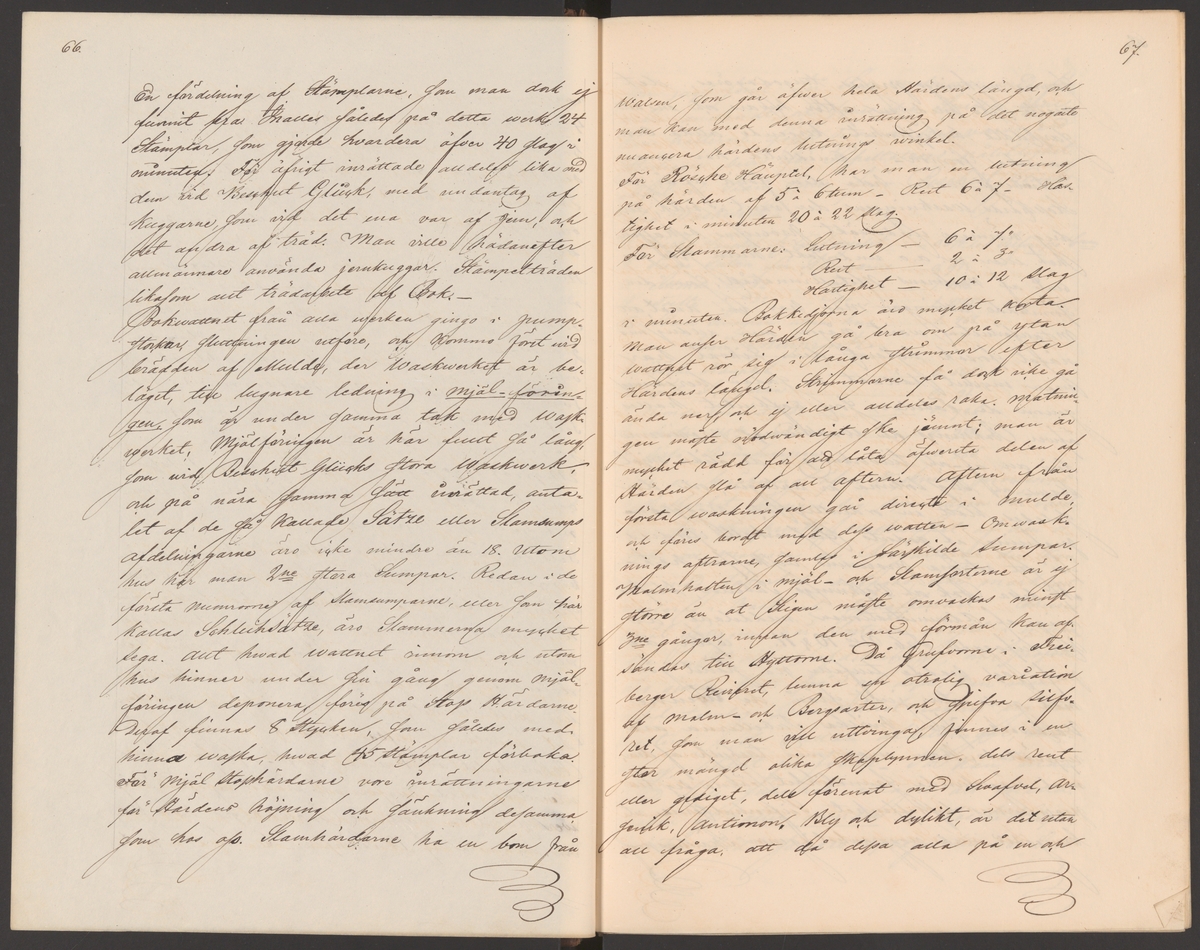 66.
En fördelning af Stämplarne, som man dock ej
funnit bra. Inalles således på detta werk 24
Stämplar, som gjorde hvardera öfver 40 slag i
minuten. För öfrigt inrättade alldeles lika med
dem vid Beschert Glück, med undantag af
Kuggarne, som vid det ena var af jern, och
det andra af träd. Man ville hädanefter
allmännare använda jernkuggar. Stämpelträden
likasom allt trädarbete af Bok. —
Bokwattnet från alla werken gingo i pump-
stockar sluttningen utföre, och kommo först vid
brädden af Mulde, der Waskwerket är be-
läget, till lugnare ledning i mjöl-förin-
gen, som är under samma tak med Wask-
werket. Mjölföringen är här fullt så lång,
som vid Beschert Glücks stora Waskwerk —
och på nära samma sätt inrättad, anta-
let af de så kallade Sätze eller Slamsumps
afdelningarne äro icke mindre än 18. Utom
hus har man 2ne stora Sumpar. Redan i de
första numrorne af Slamsumparne, eller som här
kallas Schlichsätze, äro Slammerna mycket
sega. Allt hvad wattnet innom och utom
hus hinner under sin gång genom Mjöl-
föringen deponera föres på Stop Härdarne.
Deraf finnas 8 Stycken, som således med-
hinna waska, hvad 45 Stämplar förboka.
För Mjöl Stophärdarne voro inrättningarne
för Härdens höjning och sänkning desamma
som hos oss. Slamhärdarne ha en bom från
67.
Walsen, som går öfwer hela Härdens längd, och
man kan med denna inrättning på det nogaste
nuancera härdens lutnings winkel.
För Rösche Häuptel, har man en lutning
på härden af 5 à 6 tum — Rent 6 à 7 — Has-
tighet i minuten 20 à 22 slag
För Slammarne: Lutning — 6 à 7"
Rent — 2 à 3"
Hastighet — 10 à 12 slag
i minuten. Bokkedjorna äro mycket korta.
Man anser Härden gå bra om på ytan
wattnet rör sig i långa strimmor efter
Härdens längd. Strimmorne få dock icke gå
ända ner och ej eller alldeles raka. Matnin-
gen måste nödwändigt ske jämnt; man är
mycket rädd för att låta öfwersta delen af
Härden slå af all aftern. Aftern från
första waskningen går directe i Mulde
och föres bordt med dess watten — Omwask-
nings aftrarne, samlas i särskilde sumpar.
Malmhalten i mjöl- och Slamsorterne är ej
större än at Sligen måste omvaskas minst
3ne gånger, innan den med förmån kan af-
sändas till Hyttorne. Då Grufvorne i Frei-
berger Reviret, lemna en otrolig variation
af Malm- och Bergsarter, och sjelfva silfv-
ret, som man vill utbringa, finnes i en
stor mängd olika skaplynnen, dels rent
eller gediget, dels förenat med Swafvel, Ar-
senik, Antimon, Bly och dylikt, är det utan
all fråga, att då dessa alla på en och